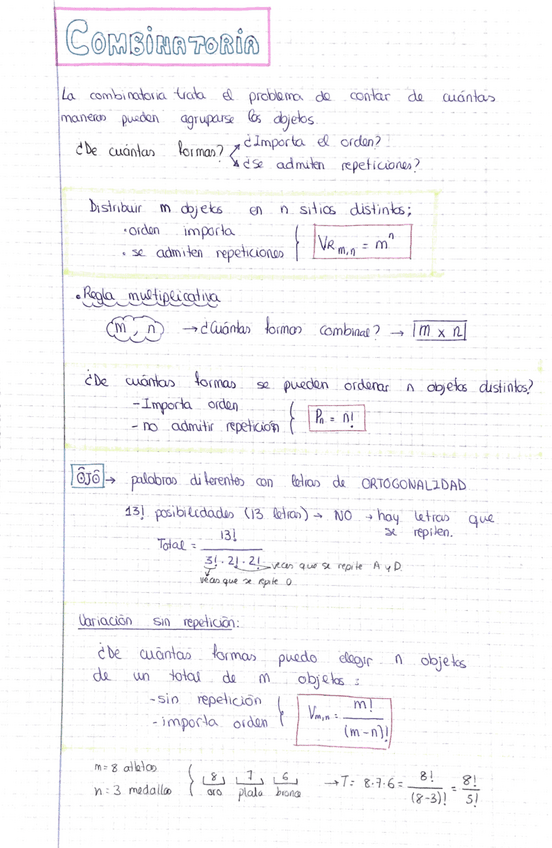 COMBINATORIA
La combinatoria trata el problema de contar de cuántas
maneras pueden agruparse los objetos.
¿De cuántas formas? ¿Importa el orden?
¿Se admiten repeticiones?
Distribuir m objetos en n sitios distintos;
· orden importa
· se admiten repeticiones
VR m,n = m^n
· Regla multiplicativa
m, n → ¿Cuántas formas combinal? → m x n
¿De cuántas formas se pueden ordenar n objetos distintos?
- Importa orden
- no admitir repetición
Pn = n!
OJO → palabras diferentes con letras de ORTOGONALIDAD
13! posibilidades (13 letras) → NO → hay letras que
se repiten.
Total = 13! / 3! · 2! · 2! → veces que se repite A y D
veces que se repite O
Variación sin repetición:
¿De cuántas formas puedo elegir n objetos
de un total de m objetos:
- sin repetición
- importa orden
Vm,n = m! / (m-n)!
m = 8 atletas
n = 3 medallas
8 7 6
oro plata bronce
→ T = 8·7·6 = 8! / (8-3)! = 8! / 5!